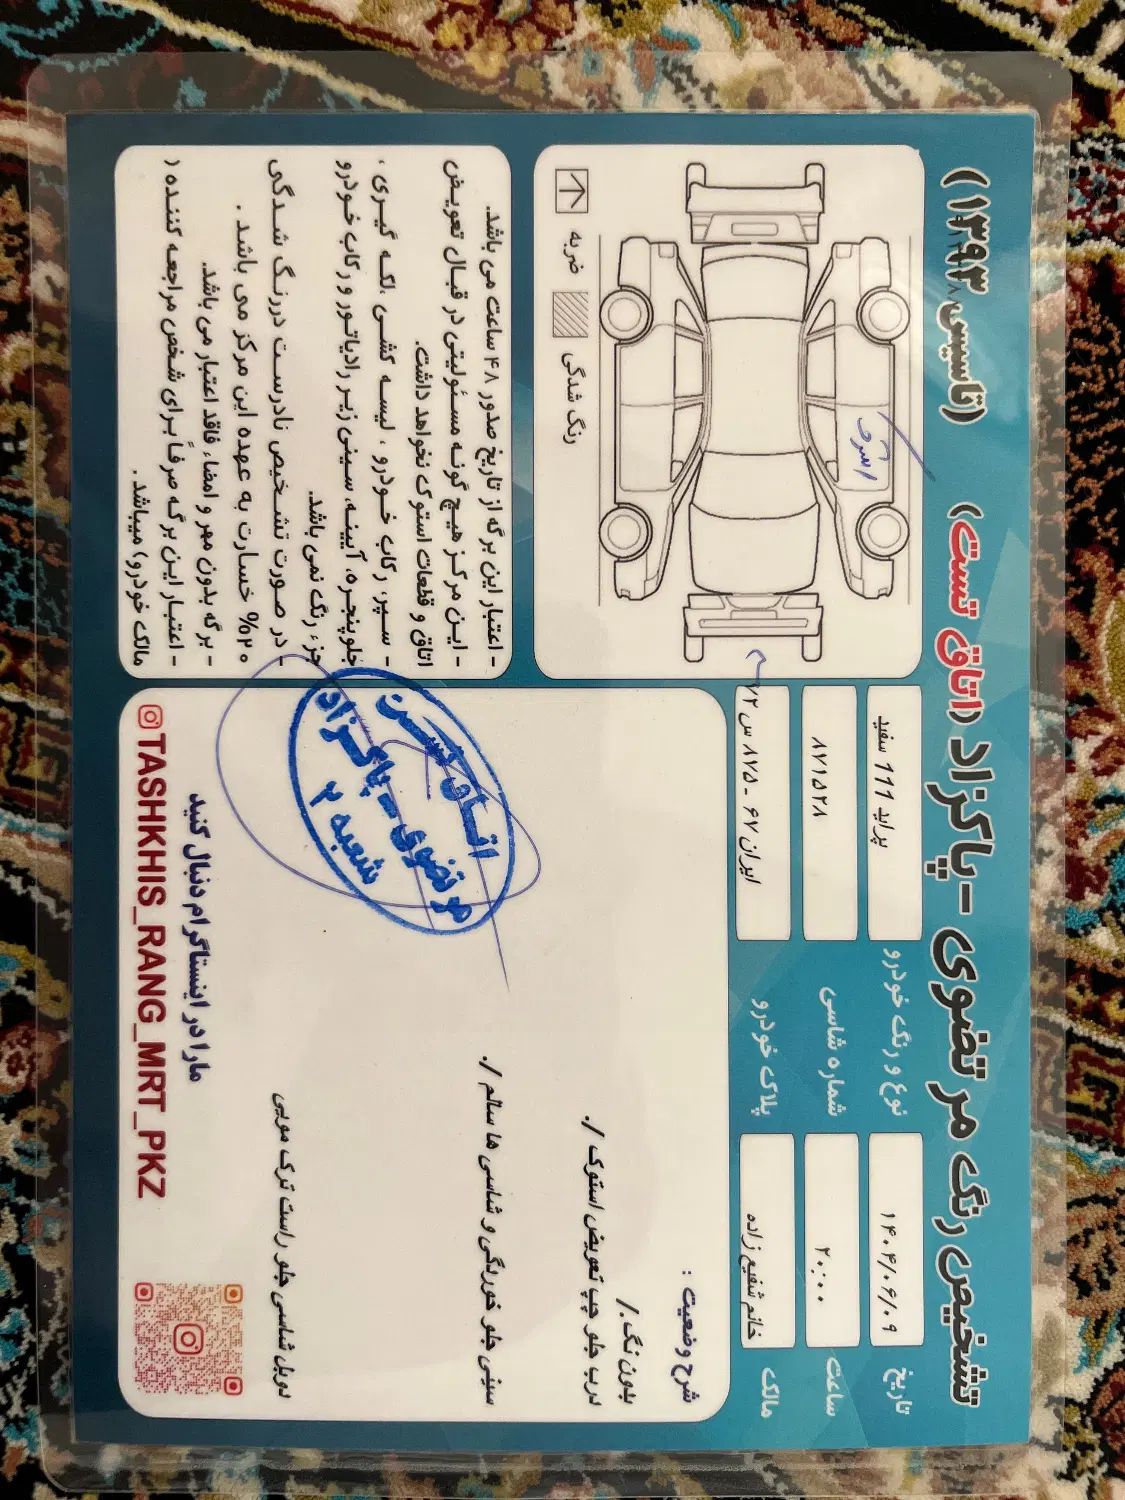 تشخیص رنگ مرتضوی - پاکزاد (اتاق تست) (تاسیس ۱۳۹۳)
تاریخ
۱۴۰۴/۰۶/۰۹
نوع و رنگ خودرو
پراید 111 سفید
ساعت
۲۰:۰۰
شماره شاسی
۸۷۱۵۲۸
مالک
خانم شفیع زاده
پلاک خودرو
ایران ۶۷ - ۸۷۵ س ۷۲
استوک
ضربه
رنگ شدگی
شرح وضعیت :
بدون رنگ ./
درب جلو چپ تعویض استوک ./
سینی جلو خوردگی و شاسی ها سالم ./
دوبل شاسی جلو راست ترک مویی
اتاق تست
مرتضوی - پاکزاد
شعبه ۲
ما را در اینستاگرام دنبال کنید
TASHKHIS_RANG_MRT_PKZ
- اعتبار این برگه از تاریخ صدور ۴۸ ساعت می باشد.
- این مرکز هیچ گونه مسئولیتی در قبال تعویض
اتاق و قطعات استوک نخواهد داشت.
- سپر، رکاب خودرو ، لیسه کشی ،لکه گیری ،
جلوپنجره، آیینه، سینی زیر رادیاتور و رکاب خودرو
جزء رنگ نمی باشد.
- در صورت تشخیص نادرست در رنگ شدگی
۲۰% خسارت به عهده این مرکز می باشد .
- برگه بدون مهر و امضاء فاقد اعتبار می باشد.
- اعتبار این برگه صرفاً برای شخص مراجعه کننده (
مالک خودرو) میباشد .